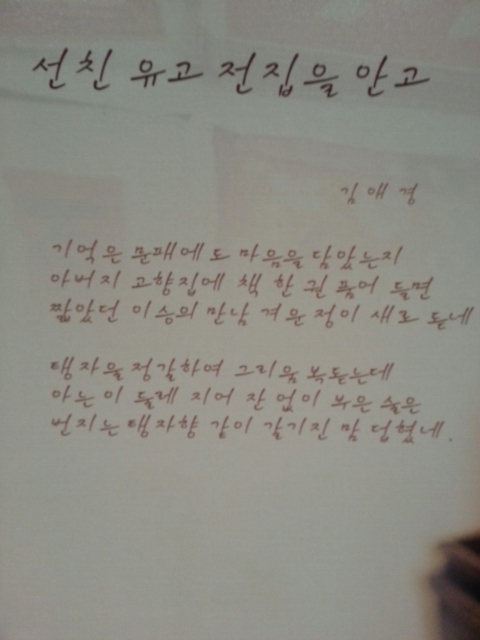 선친 유고 전집을 안고
김애경
기억은 문패에도 마음을 담았는지
아버지 고향집에 책 한 권 품어 들면
짧았던 이승의 만남 겨운 정이 새로 돋네
탱자을 정갈하여 그리움 복돋는데
아는 이 둘레 지어 잔 없이 부은 술은
번지는 탱자향 같이 갈기진 맘 덥혔네.